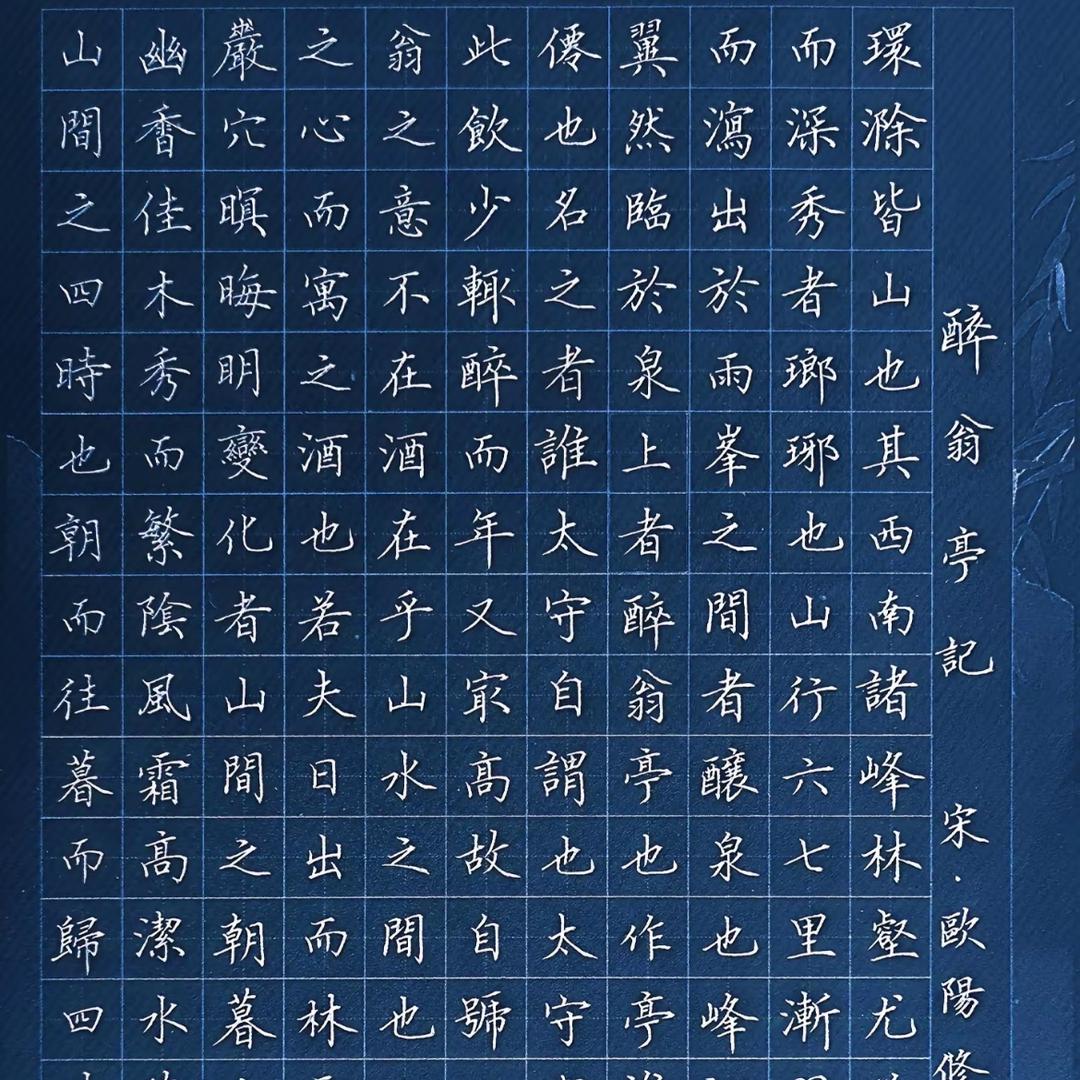 醉翁亭記 宋·歐陽修
環滁皆山也其西南諸峰林壑尤
而深秀者瑯琊也山行六七里漸
而瀉出於兩峯之間者釀泉也峰
翼然臨於泉上者醉翁亭也作亭
僊也名之者誰太守自謂也太守
此飲少輒醉而年又冣高故自號
翁之意不在酒在乎山水之間也
之心而寓之酒也若夫日出而林
巖穴暝晦明變化者山間之朝暮
幽香佳木秀而繁陰風霜高潔水
山間之四時也朝而往暮而歸四